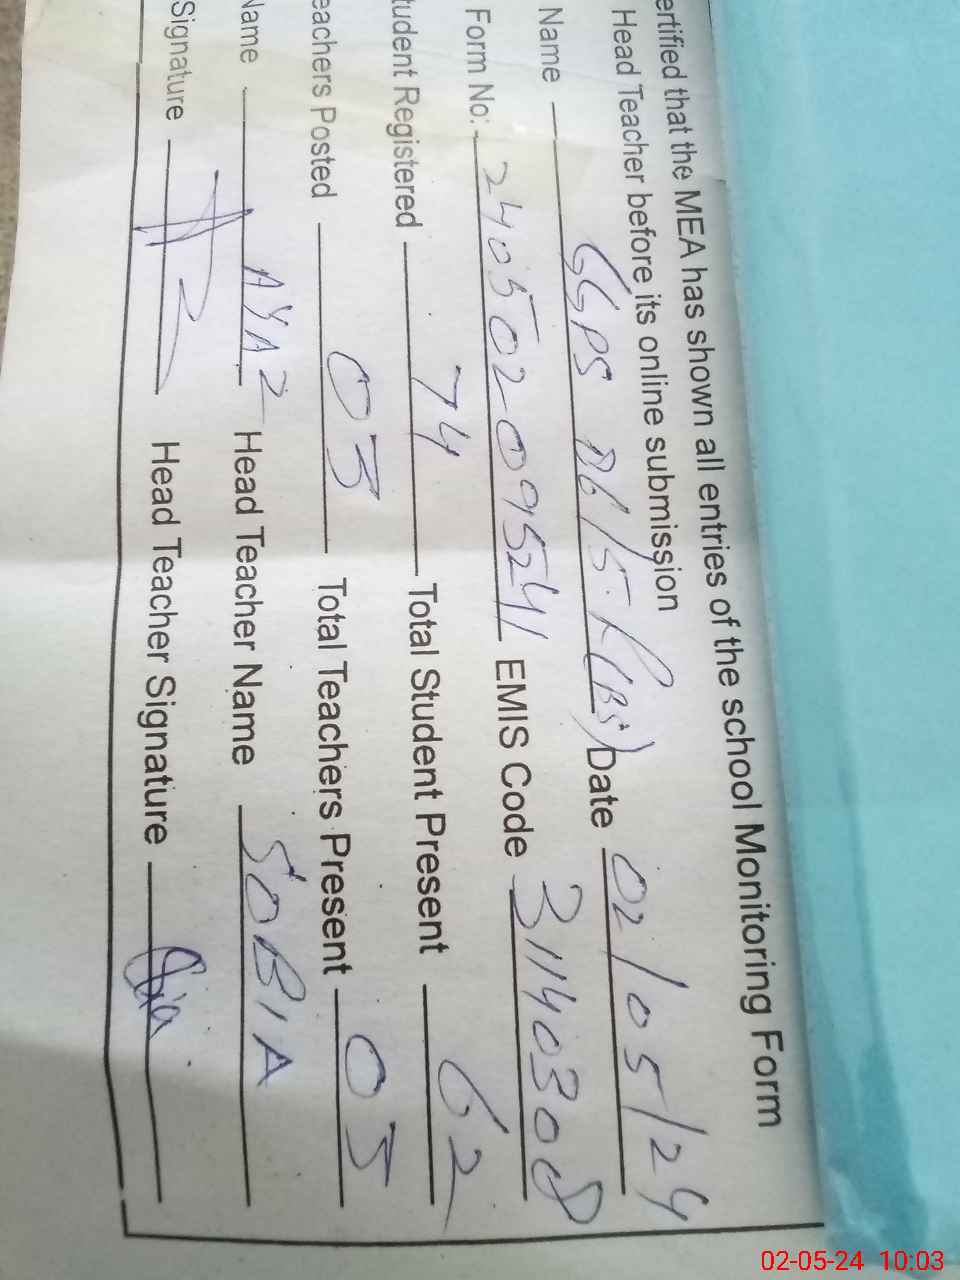 ertified that the MEA has shown all entries of the school Monitoring Form
Head Teacher before its online submission
Name GGPS 86/5-R(BS) Date 02/05/24
Form No: 240502095241 EMIS Code 31140308
tudent Registered 74 Total Student Present 62
eachers Posted 03 Total Teachers Present 03
Name AYAZ Head Teacher Name SOBIA
Signature Head Teacher Signature
02-05-24 10:03